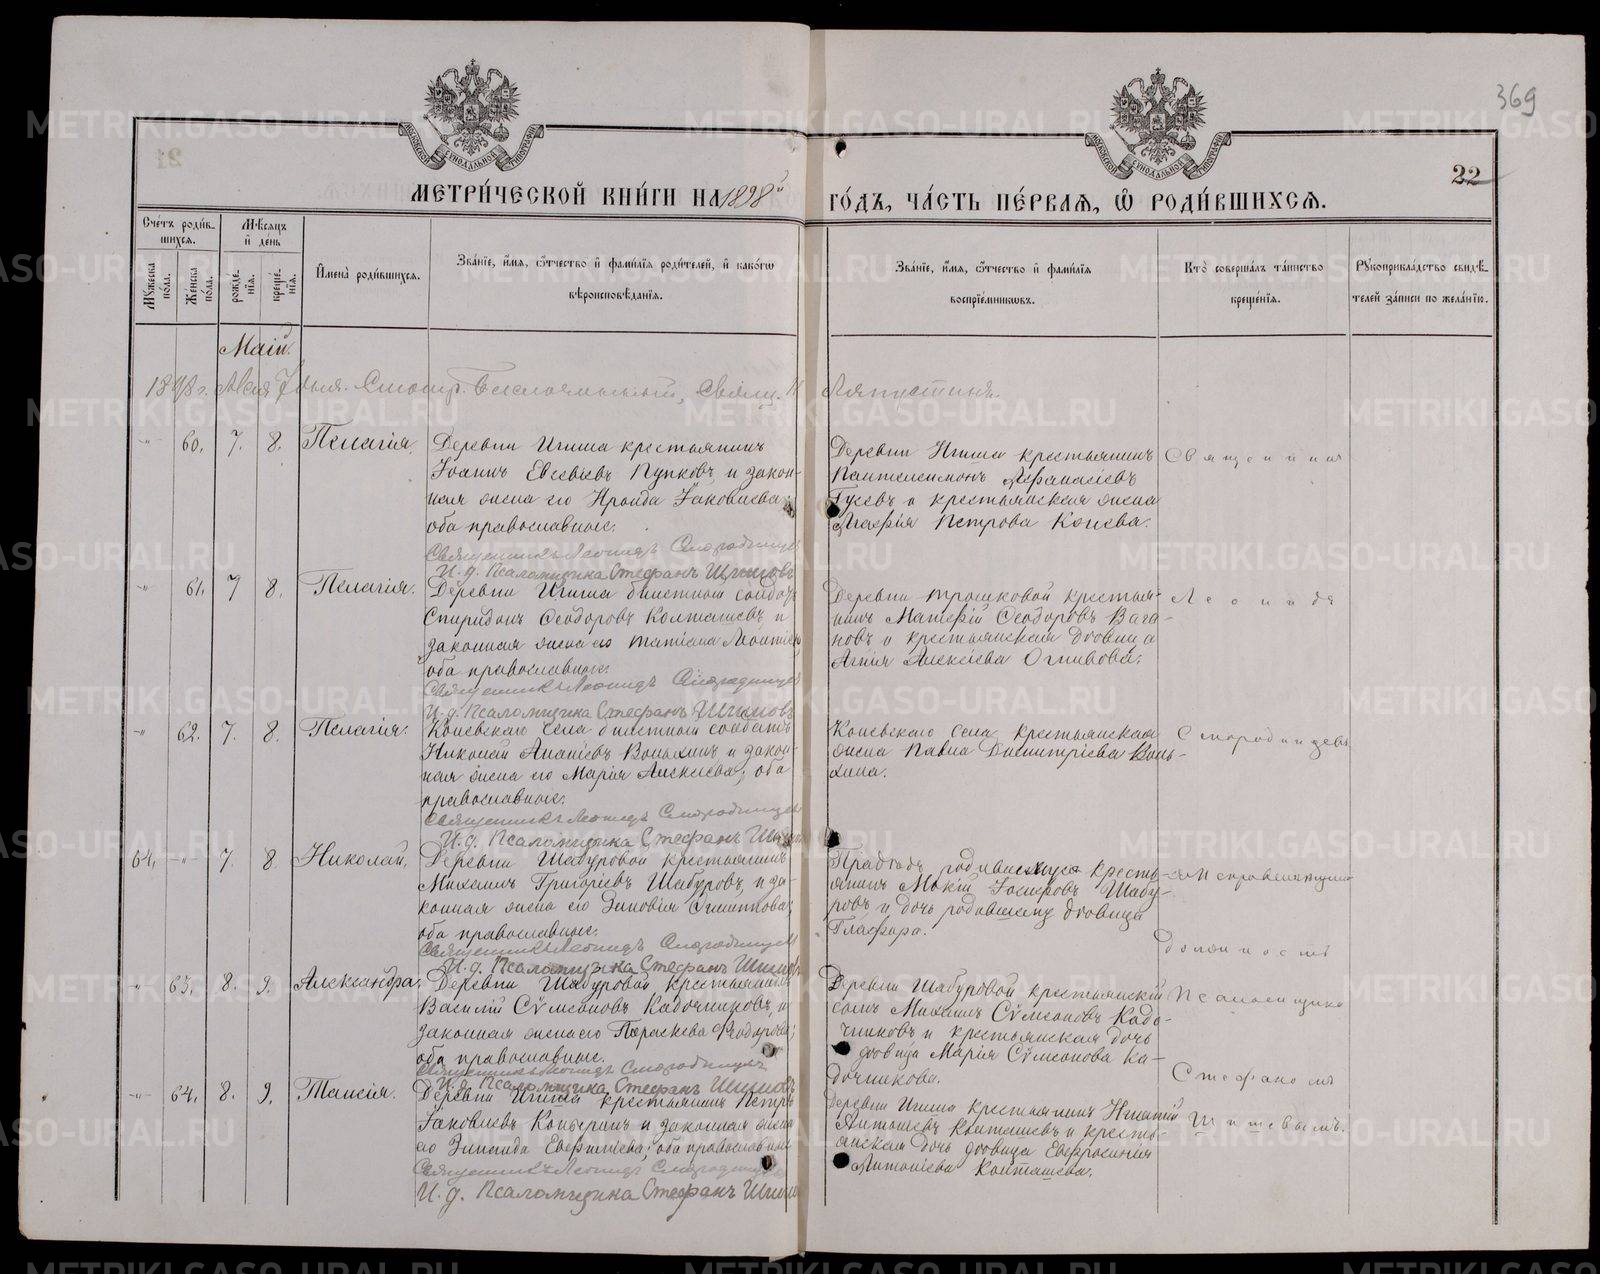 369
22
МЕТРИ́ЧЕСКОЙ КНИ́ГИ НА 1898й ГО́ДЪ, ЧА́СТЬ ПЕ́РВАЯ, Ѡ҆ РОДИ́ВШИХСЯ.
Сче́тъ роди́в-
шихся.
Мѣ́сяцъ
и҆ де́нь
Мꙋ́жеска
по́ла.
Же́нска
по́ла.
рожде́-
нїя.
креще́-
нїя.
И҆мена̀ роди́вшихся.
Зва́нїе, и҆́мя, ѻ҆́тчество и҆ фами́лїя роди́телей, и҆ како́гѡ
вѣроисповѣ́данїя.
Зва́нїе, и҆́мя, ѻ҆́тчество и҆ фами́лїя
воспрїе́мникѡвъ.
Кто̀ соверша́лъ та́инство
креще́нїя.
Рꙋкоприкла́дство свидѣ́-
телей за́писи по жела́нїю.
Май.
1898 г.
60. 7. 8. Пелагія.
Деревни Игиша крестьянинъ
Іоаннъ Евсевіевъ Пупковъ и закон-
ная жена его Ираида Іаковлева;
оба православные.
Священникъ Леонидъ Смородинцев
И. д. Псаломщика Стефанъ Шишовъ
Деревни Игиша крестьянинъ
Пантелеимонъ Афанасіевъ
Гусевъ и крестьянская жена
Марія Петрова Конева.
Священник
61. 7 8. Пелагія.
Деревни Игиша билетный солдатъ
Спиридонъ Ѳеодоровъ Колташевъ и
законная жена его Татіана Леонтіева
оба православные.
Священникъ Леонидъ Смородинцев
И. д. Псаломщика Стефанъ Шишовъ
Деревни Трошковой крестья-
нинъ Матѳій Ѳеодоровъ Вага-
новъ и крестьянская дѣвица
Агнія Алексіева Огнивова.
Леонидъ
62. 7. 8. Пелагія.
Коневскаго села билетный солдатъ
Николай Ананіевъ Волыхинъ и закон-
ная жена его Марія Алексіева; оба
православные.
Священникъ Леонидъ Смородинцев
И. д. Псаломщика Стефанъ Шишов
Коневскаго села крестьянская
жена Павла Димитріева Волы-
хина.
Смородинцевъ
64. 7. 8 Николай.
Деревни Шабуровой крестьянинъ
Михаилъ Григоріевъ Шабуровъ и за-
конная жена его Зиновія Филиппова;
оба православные.
Священникъ Леонидъ Смородинцев
И. д. Псаломщика Стефанъ Шишов
крестья-
янинъ Мокій Іосифовъ Шабу-
ровъ и дочь родившему дѣвица
Глафира.
съ и справляющимъ
должность
63. 8. 9. Александра.
Деревни Шабуровой крестьянинъ
Василій Сѵмеоновъ Кадочниковъ и
законная жена его Параскева Ѳеодорова;
оба православные.
Священникъ Леонидъ Смородинцев
И. д. Псаломщика Стефанъ Шишовъ
Деревни Шабуровой крестьянскій
сынъ Михаилъ Сѵмеоновъ Кадо-
чниковъ и крестьянская дочь
дѣвица Марія Сѵмеонова Ка-
дочникова.
Псаломщика
Стефаномъ
64. 8. 9. Таисія.
Деревни Игиша крестьянинъ Петръ
Іаковлевъ и законная жена
его Зинаида Евфиміева; оба православные
Священникъ Леонидъ Смородинцев
И. д. Псаломщика Стефанъ Шишов
Деревни Игиша крестьянинъ Игнатій
Антоніевъ Колташевъ и кресть-
янская дочь дѣвица Евфросинія
Антоніева Колташева.
Шишовымъ.
METRIKI.GASO-URAL.RU